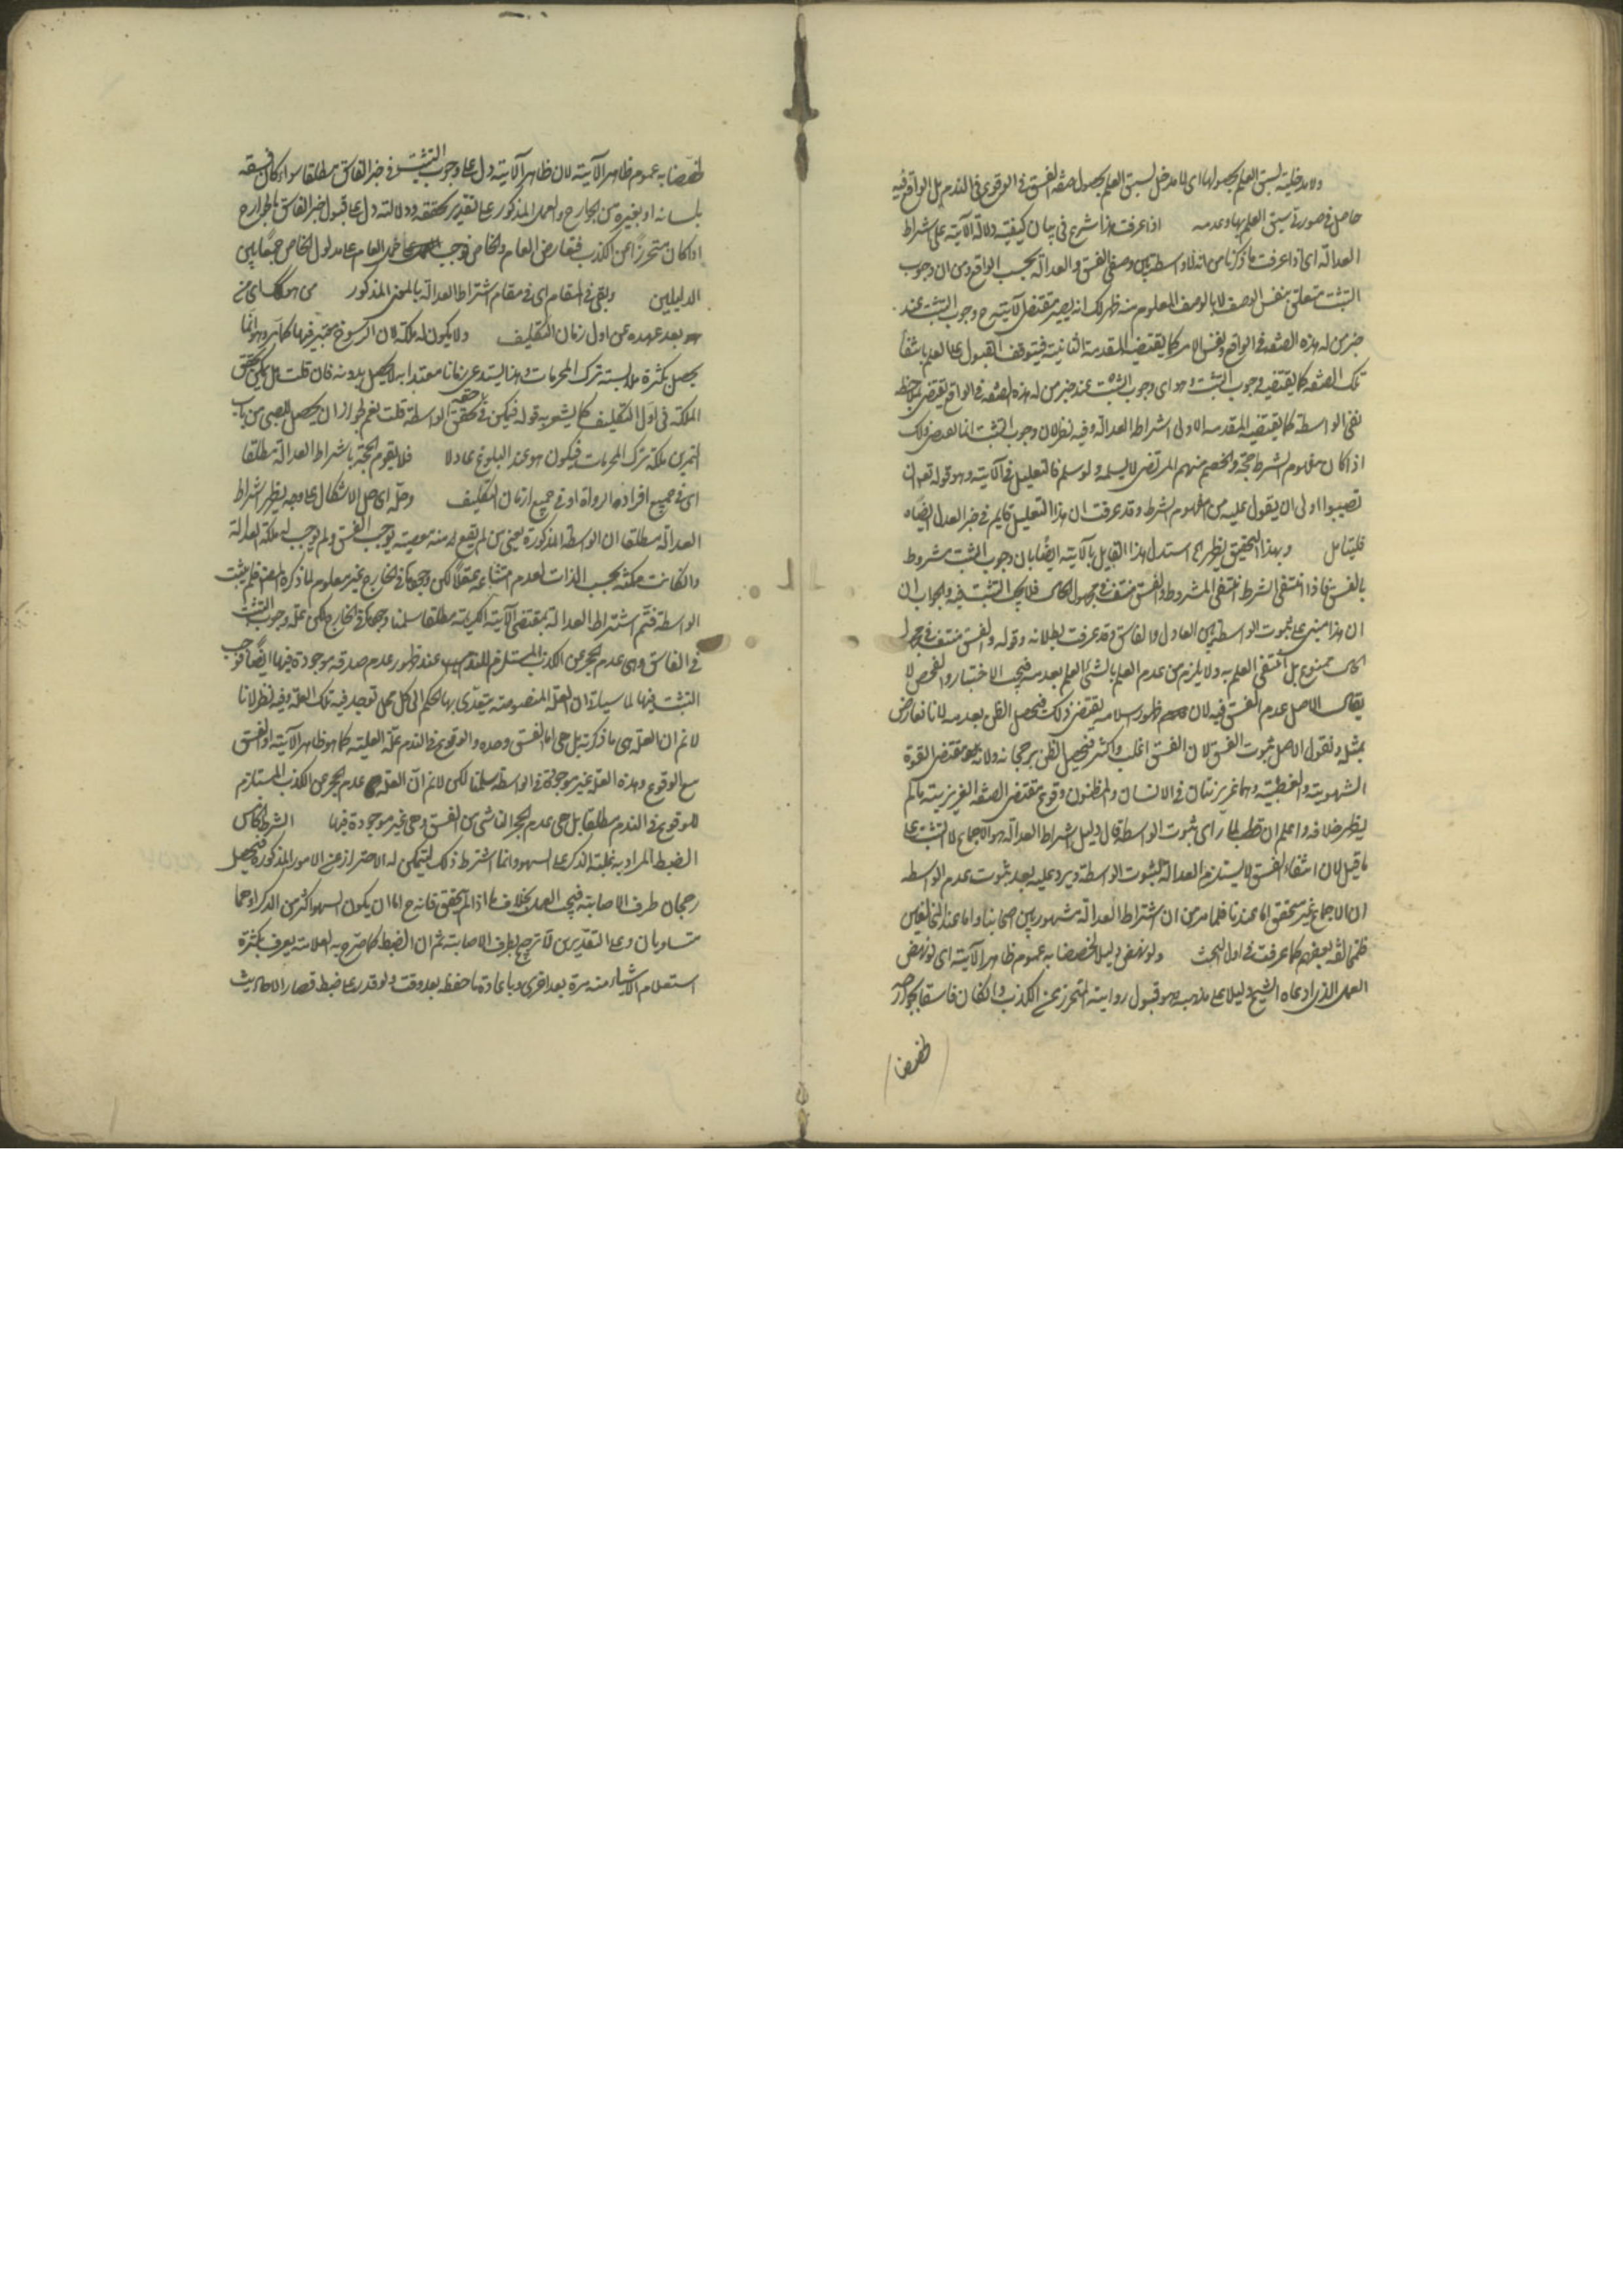 ولا مدخلية لسبق العلم بحصولها اى لا مدخل لسبق العلم بحصول صفة الفسق فى الوقوع فى الندم بل الواقع فيه
حاصل فى صورتى سبق العلم بها وعدمه اذا عرفت هذا شرع فى بيان كيفية دلالة الآية على اشتراط
العدالة اى اذا عرفت ما ذكرنا من انه لا واسطة بين وصفى الفسق والعدالة بحسب الواقع ومن ان وجوب
التثبت متعلق بنفس الوصف لا بالوصف المعلوم منه ظهر لك انه يصير مقتضى الآية ح وجوب التثبت عند
خبر من له هذه الصفة فى الواقع ونفس الامر كما يقتضيه المقدمة الثانية فيتوقف القبول على العلم بانتفاء
تلك الصفة كما يقتضيه وجوب التثبت وهو اى وجوب التثبت عند خبر من له هذه الصفة فى الواقع يقتضى بملاحظة
نفى الواسطة كما يقتضيه المقدمة الاولى اشتراط العدالة وفيه نظر لان وجوب التثبت انما يقتضى ذلك
اذا كان مفهوم الشرط حجة والخصم منهم المرتضى لا يسلمه ولو سلم فالتعليل فى الآية وهو قوله تعالى ان
تصيبوا اولى ان يقول عليه من مفهوم الشرط وقد عرفت ان هذا التعليل قايم فى خبر العدل ايضاه
فليتامل وبهذا التحقيق يظهر استدل هذا القايل بالآية ايضا بان وجوب التثبت مشروط
بالفسق فاذا انتفى الشرط انتفى المشروط والفسق منتف فى مجهول الحال فلا يجب التثبت فيه والجواب ان
ان هذا مبنى على ثبوت الواسطة بين العادل والفاسق وقد عرفت بطلانه وقوله والفسق منتف فى مجهول
الحال ممنوع بل انتفى العلم به ولا يلزم من عدم العلم بالشئ العلم بعدمه فيجب الاختبار والفحص لا
يقال الاصل عدم الفسق فيه لان ظهور اسلامه يقتضى ذلك فيحصل الظن بعدمه لانا نعارض
بمثله ونقول الاصل ثبوت الفسق لان الفسق اغلب واكثر فيحصل الظن برجحانه ولانه مقتضى القوة
الشهوية والغضبية وهما غريزيتان فى الانسان والمظنون وقوع مقتضى الصفة الغريزية ما لم
يظهر خلافه واعلم ان قطب لما راى ثبوت الواسطة قال دليل اشتراط العدالة هو الاجماع لا التثبت على
ما قيل لان انتفاء الفسق لا يستلزم العدالة لثبوت الواسطة ويرد عليه بعد ثبوت عدم الواسطة
ان الاجماع غير متحقق اما عندنا فلما مر من ان اشتراط العدالة مشهور بين اصحابنا واما عند المخالفين
فلمخالفة بعضهم كما عرفت فى اول البحث ولو نهض دليلا لخصصنا به عموم ظاهر الآية اى لو نهض
العمل الذى ادعاه الشيخ دليلا على مذهبه وهو قبول رواية المتحرز عن الكذب وان كان فاسقا بجوارحه
لخصصنا
لخصصنا به عموم ظاهر الآية لان ظاهر الآية دل على وجوب التثبت فى خبر الفاسق مطلقا سواء كان فسقه
بلسانه او بغيره من الجوارح والعمل المذكور على تقدير تحققه ودلالته دل على قبول خبر الفاسق بالجوارح
اذا كان متحرزا عن الكذب فتعارض العام والخاص فوجب حمل العام على مدلول الخاص جمعا بين
الدليلين وبقى فى المقام اى فى مقام اشتراط العدالة بالمعنى المذكور اشكال اى منع
هو بعد عهده عن اول زمان التكليف ولا يكون له ملكة لان الرسوخ معتبر فيها كما مر وهو انما
يحصل بكثرة ملابسته ترك المحرمات وهذا يستدعى زمانا معتدا به لا يحصل بدونه فان قلت هل يمكن تحقق
الملكة فى اول التكليف كما يشعر به قوله فيمكن فى حقه تحقق الواسطة قلت نعم لجواز ان يحصل للصبى من باب
التمرين ملكة ترك المحرمات فيكون هو عند البلوغ عادلا فلا يقوم الحجة باشتراط العدالة مطلقا
اى فى جميع افراد الرواة او فى جميع ازمان التكليف وحله اى حل الاشكال على وجه يظهر اشتراط
العدالة مطلقا ان الواسطة المذكورة يعنى من لم يقع منه معصية يوجب الفسق ولم يوجب له ملكة العدالة
وان كانت ممكنة بحسب الذات لعدم امتناعه عقلا لكن وجودها فى الخارج غير معلوم لما ذكره المص فلم يثبت
الواسطة فتم اشتراط العدالة بمقتضى الآية الكريمة مطلقا سلمنا وجودها فى الخارج لكن علة وجوب التثبت
فى الفاسق وهى عدم الحجر عن الكذب المستلزم للندم عند ظهور عدم صدقه موجودة فيها ايضا فوجب
التثبت فيها لما سياتى ان العلة المنصوصة يتعدى بها الحكم الى كل محل توجد فيه تلك العلة وفيه نظر لانا
لا نم ان العلة هى ما ذكرته بل هى اما الفسق وحده والوقوع فى الندم علة العلية كما هو ظاهر الآية او الفسق
مع الوقوع وهذه العلة غير موجودة فى الواسطة سلمنا لكن لا نم ان العلة عدم الحجر عن الكذب المستلزم
للوقوع فى الندم مطلقا بل هى عدم الحجر الناشى من الفسق وهى غير موجودة فيها الشرط الخامس
الضبط المراد به غلبة الذكر على السهو وانما اشترط ذلك ليتمكن له الاحتراز عن الامور المذكورة فيحصل
رجحان طرف الاصابة فيجب العمل بخلاف ما اذا لم يتحقق فانه ح اما ان يكون السهو اكثر من الذكر او هما
متساويان وعلى التقديرين لا ترجيح لطرف الاصابة ثم ان الضبط كما صرح به العلامة يعرف بكثرة
استعلام الاشياء منه مرة بعد اخرى وباعادة ما حفظ بعد وقت ولو قدر على ضبط قصار الاحاديث